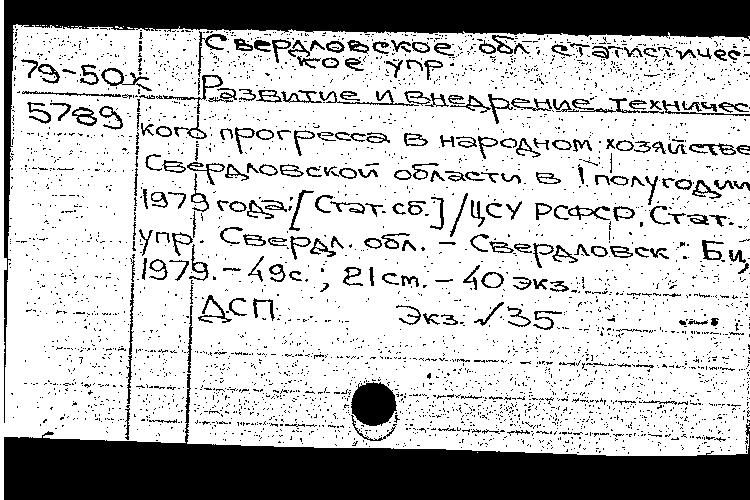 Свердловское обл. статистичес-
кое упр.
79-50к
Развитие и внедрение техничес
5789
кого прогресса в народном хозяйстве
Свердловской области в I полугодии
1979 года: [Стат. сб.] / ЦСУ РСФСР, Стат.
упр. Свердл. обл. - Свердловск : Б.и,
1979. - 49с. ; 21 cm. - 40 экз.
ДСП Экз. √35